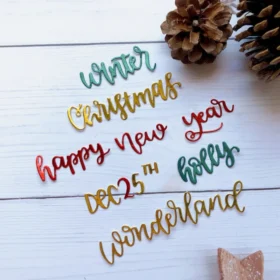 winter
Christmas
happy new year
DEC 25TH holly
wonderland